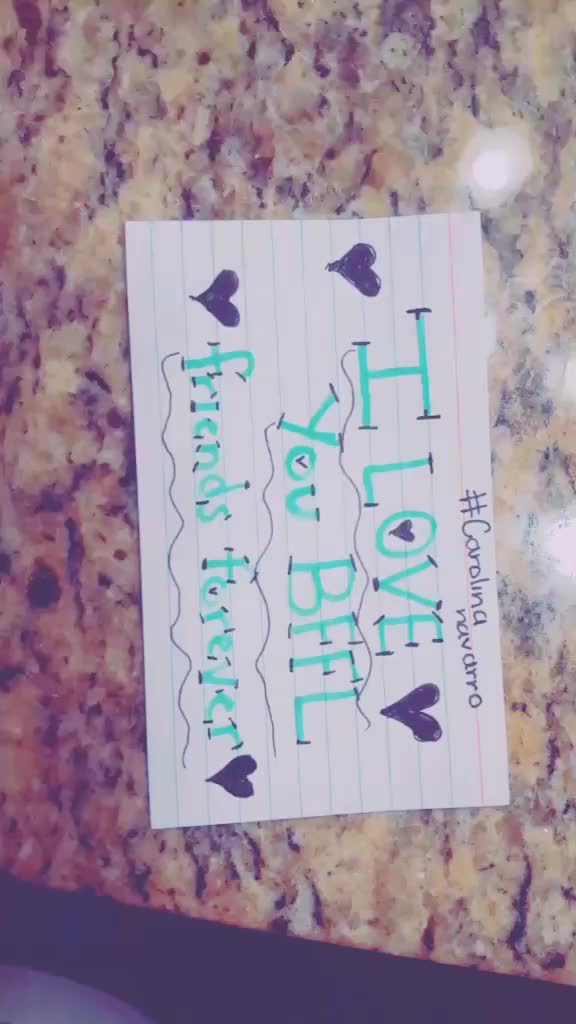 #Carolina
navarro
I LOVE
You BFFL
friends forever